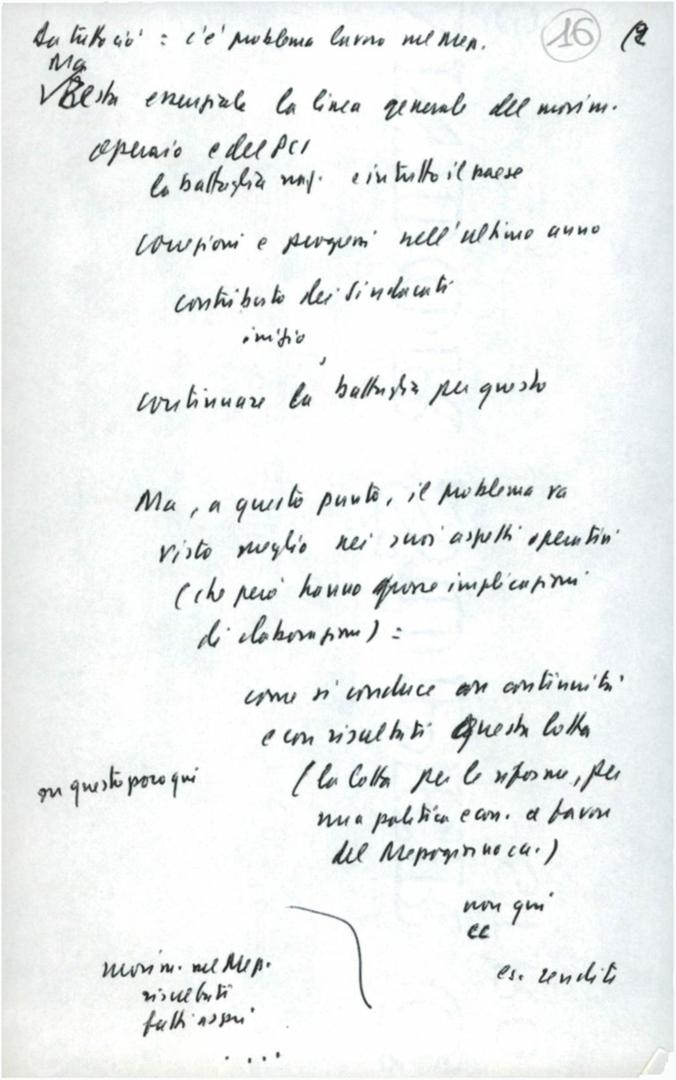 Da tutto ciò : c'è problema lavoro nel Mezz. 16 (2
Ma
Resta essenziale la linea generale del movim.
operaio e del PCI
la battaglia naz. e in tutto il paese
e progressi nell'ultimo anno
contributo dei sindacati
inizio
continuare la battaglia per questo
Ma, a questo punto, il problema va
visto meglio nei suoi aspetti operativi
(che però hanno grosse implicazioni
di elaborazione) :
come si conduce con continuità
e con risultati questa lotta
(la lotta per le riforme, per
una politica econ. a favore
del Mezzogiorno ecc.)
su questo poco qui
non qui
cc
movim. nel Mezz.
risultati
fatti nuovi
. . . .
es. rendite